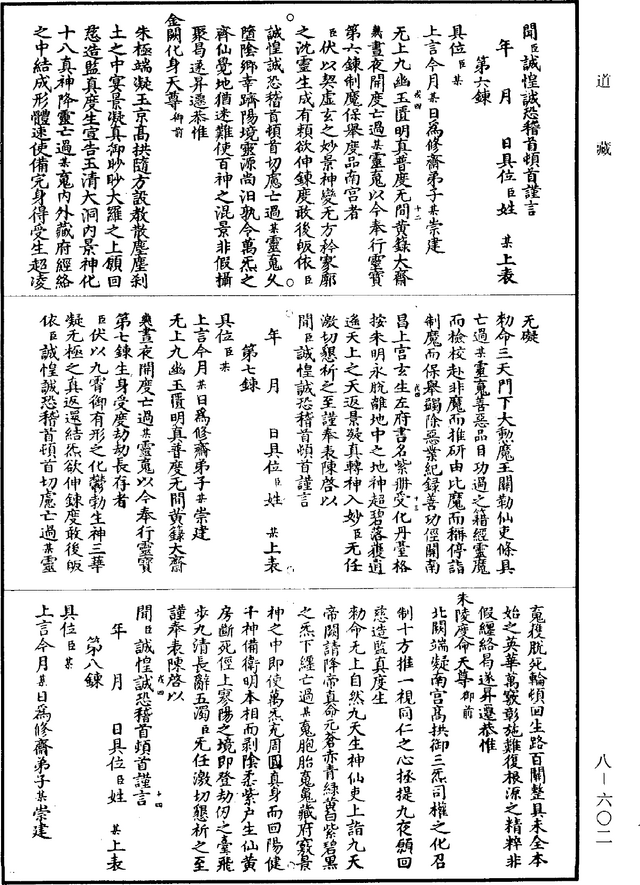 道藏
聞臣誠惶誠恐稽首頓首謹言
年 月 日具位臣姓 某上表
第六鍊
具位臣某
上言今月某日為修齋弟子某崇建
无上九幽玉匱明真普度无間黃籙大齋
幾晝夜開度亡過某靈䰟以今奉行靈寶
第六鍊制魔保舉度品南宮者
臣伏以契虛玄之妙景神變无方衿寥廓
之沈靈生成有頼欲伸鍊度敢後皈依臣
誠惶誠恐稽首頓首切慮亡過某靈䰟久
墮陰鄉幸躋陽境靈源尚汨孰令萬炁之
齊仙覺地猶迷難使百神之混景非假攝
聚曷遂昇遷恭惟
金闕化身天尊御前
朱極端凝玉京高拱隨方設教散塵塵刹
土之中宴景凝真御眇眇大羅之上願回
慈造監真度生宣告玉清大洞內景神化
十八真神降靈亡過某䰟內外藏府經絡
之中結成形體速使備完身得受生超凌
无礙
勑命三天門下大勳魔王關勒仙吏條具
亡過某靈䰟善惡品目功過之籍經靈魔
而檢校赴非魔而推研由比魔而稱停詣
制魔而保舉蠲除惡業紀録善功徑開南
昌上宮玄生左府書名紫册受化丹臺格
按朱明永脱離地中之地神超碧落獲逍
遙天上之天返景凝真轉神入妙臣无任
激切懇祈之至謹奉表陳啓以
聞臣誠惶誠恐稽首頓首謹言
年 月 日具位臣姓 某上表
第七鍊
具位臣某
上言今月某日為修齋弟子某崇建
无上九幽玉匱明真普度无間黃籙大齋
幾晝夜開度亡過某靈䰟以今奉行靈寶
第七鍊生身受度劫劫長存者
臣伏以九霄御有形之化欝勃生神三華
凝无極之真返還結炁欲伸鍊度敢後皈
依臣誠惶誠恐稽首頓首切慮亡過某靈
䰟獲脱死輪頓回生路百關整具未全本
始之英華萬竅彰施難復根源之精粹非
假纏絡曷遂昇遷恭惟
朱陵度命天尊御前
北闕端凝南宮高拱御三炁司權之化召
制十方推一視同仁之心拯提九夜願回
慈造監真度生
勑命无上自然九天生神仙吏上詣九天
帝闕請降帝真命元蒼赤青綠黃白紫碧黑
之炁下纏亡過某䰟胞胎䰟䰟藏府竅景
神之中即使萬炁充周圓真身而回陽健
千神備衛明本相而剥陰柔紫戶生仙黃
房斷死徑上寥陽之境即登劫仞之臺飛
步九清長辭五濁臣无任激切懇祈之至
謹奉表陳啓以
聞臣誠惶誠恐稽首頓首謹言
年 月 日具位臣姓 某上表
第八鍊
具位臣某
上言今月某日為修齋弟子某崇建
八—六〇二